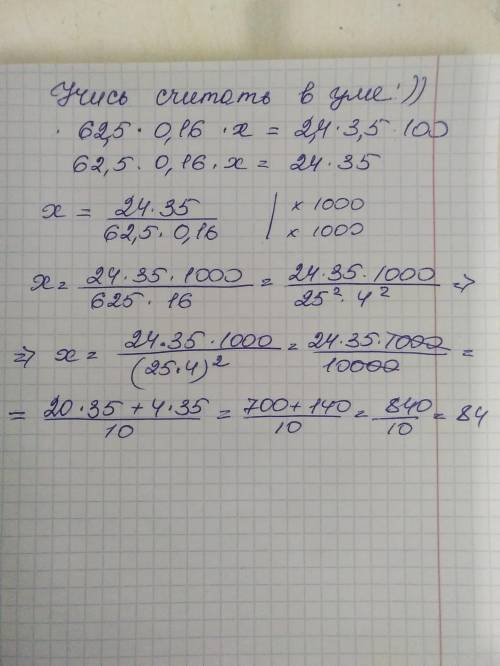 Учись считать в уме:))
· 62,5 · 0,16 · x = 2,4 · 3,5 · 100
62,5 · 0,16 · x = 24 · 35
x = 24·35 / 62,5·0,16 | x 1000 x 1000
x = 24·35·1000 / 625·16 = 24·35·1000 / 25²·4² =>
=> x = 24·35·1000 / (25·4)² = 24·35·1000 / 10000 =
= 20·35+4·35 / 10 = 700+140 / 10 = 840 / 10 = 84